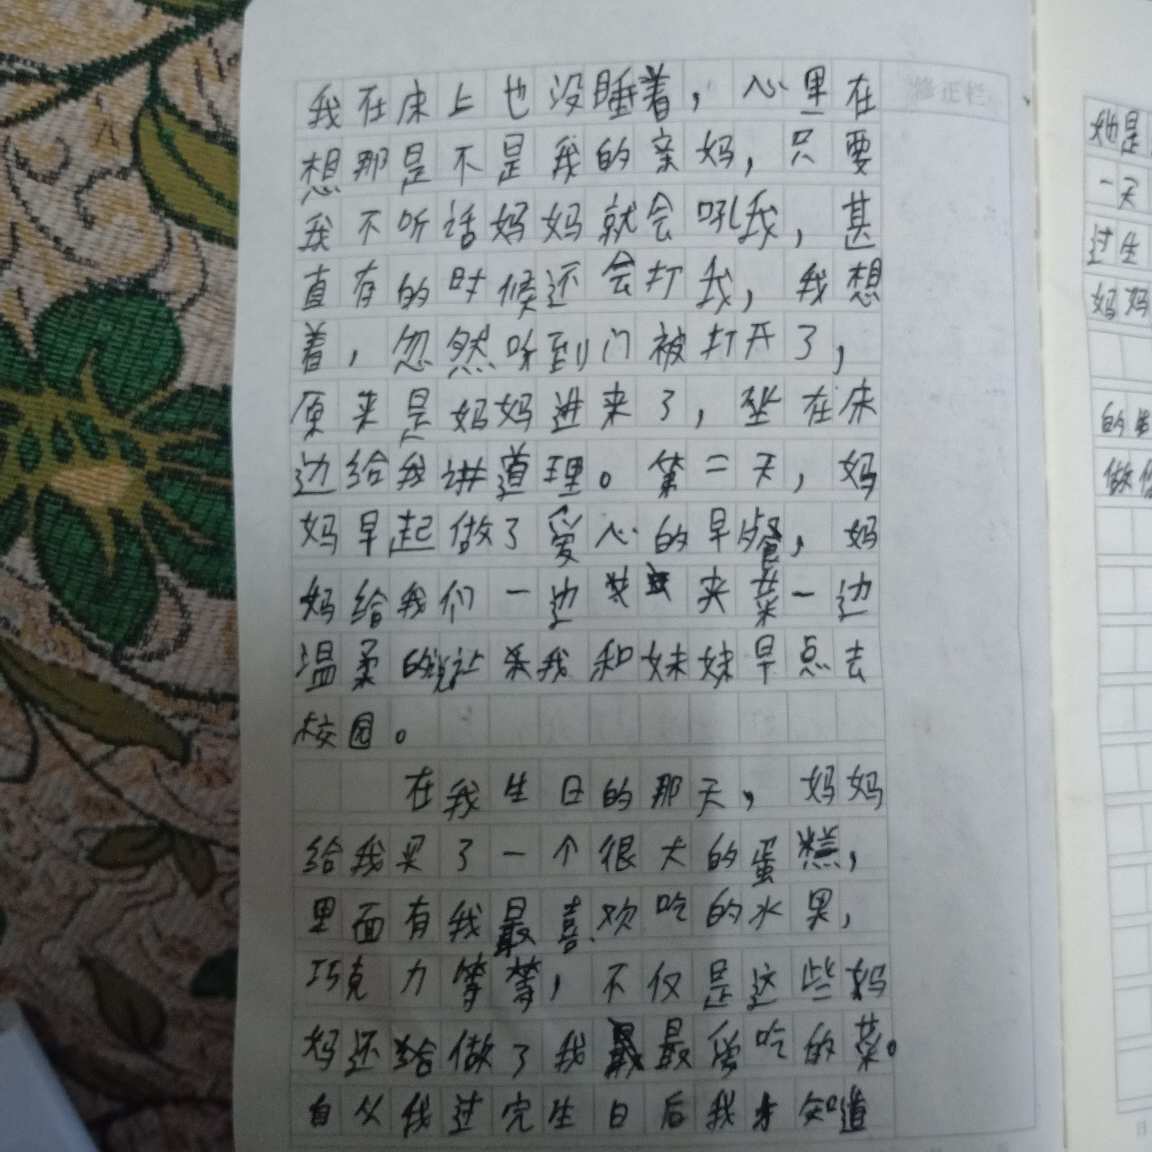 修正栏
我在床上也没睡着，心里在
想那是不是我的亲妈，只要
我不听话妈妈就会吼我，甚
直有的时候还会打我，我想
着，忽然听到门被打开了，
原来是妈妈进来了，坐在床
边给我讲道理。第二天，妈
妈早起做了爱心的早餐，妈
妈给我们一边夹菜一边
温柔的说让我和妹妹早点去
校园。
在我生日的那天，妈妈
给我买了一个很大的蛋糕，
里面有我最喜欢吃的水果，
巧克力等等，不仅是这些妈
妈还给做了我最爱吃的菜。
自从我过完生日后我才知道
她是
一天
过生
妈妈
的
做